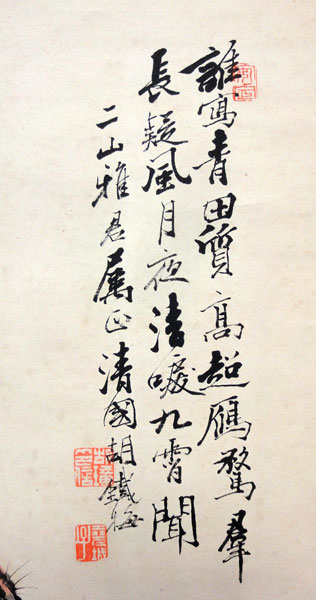 誰寫青田質高超鴈鶩羣
長疑風月夜清唳九霄聞
二山雅君属正清國胡鐵梅